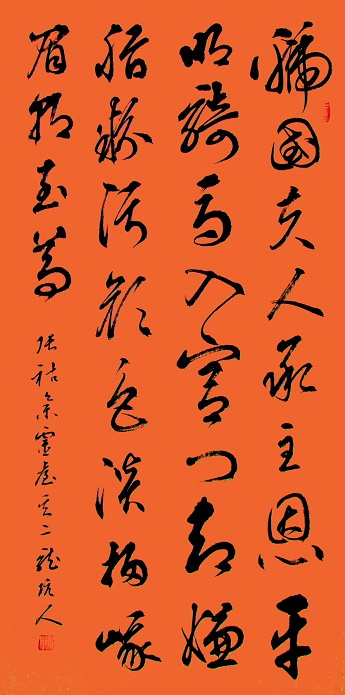 虢國夫人承主恩平
明騎馬入宮門却嫌
脂粉污顏色淡掃峨
眉朝至尊
張祜集靈臺其二龍坑人